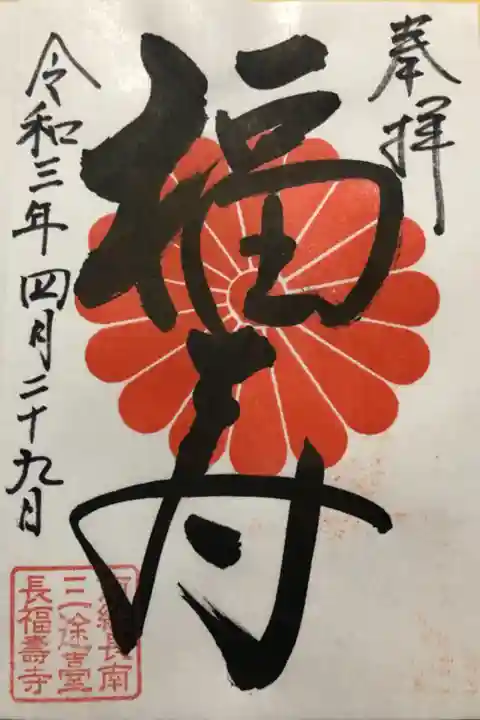 奉拝
福寿
令和三年四月二十九日
總長南
三途臺
長福壽寺